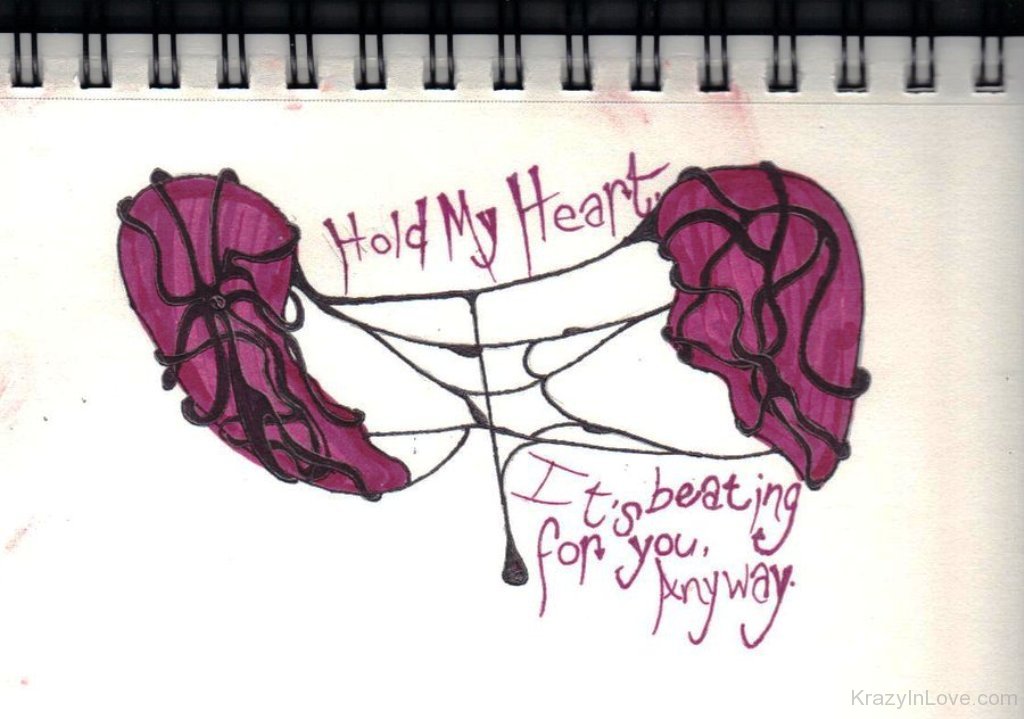 Hold My Heart.
It's beating
for you,
Anyway.
KrazyInLove.com